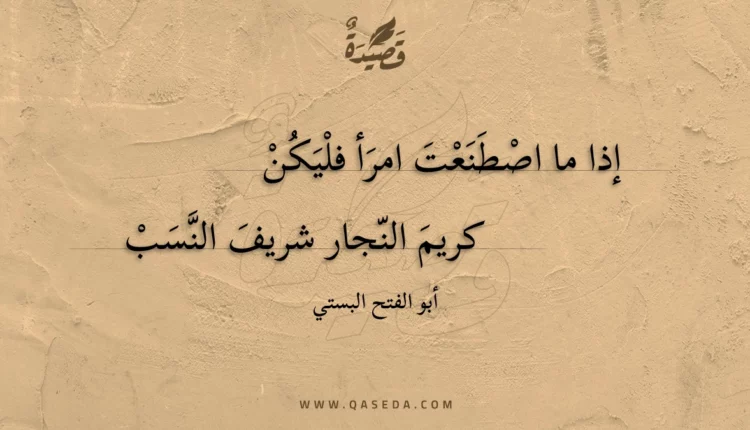 قَصِيْدَةٌ
إذا ما اصْطَنَعْتَ امرَأ فلْيَكُنْ
كريمَ النّجار شريفَ النَّسَبْ
أبو الفتح البستي
WWW.QASEDA.COM